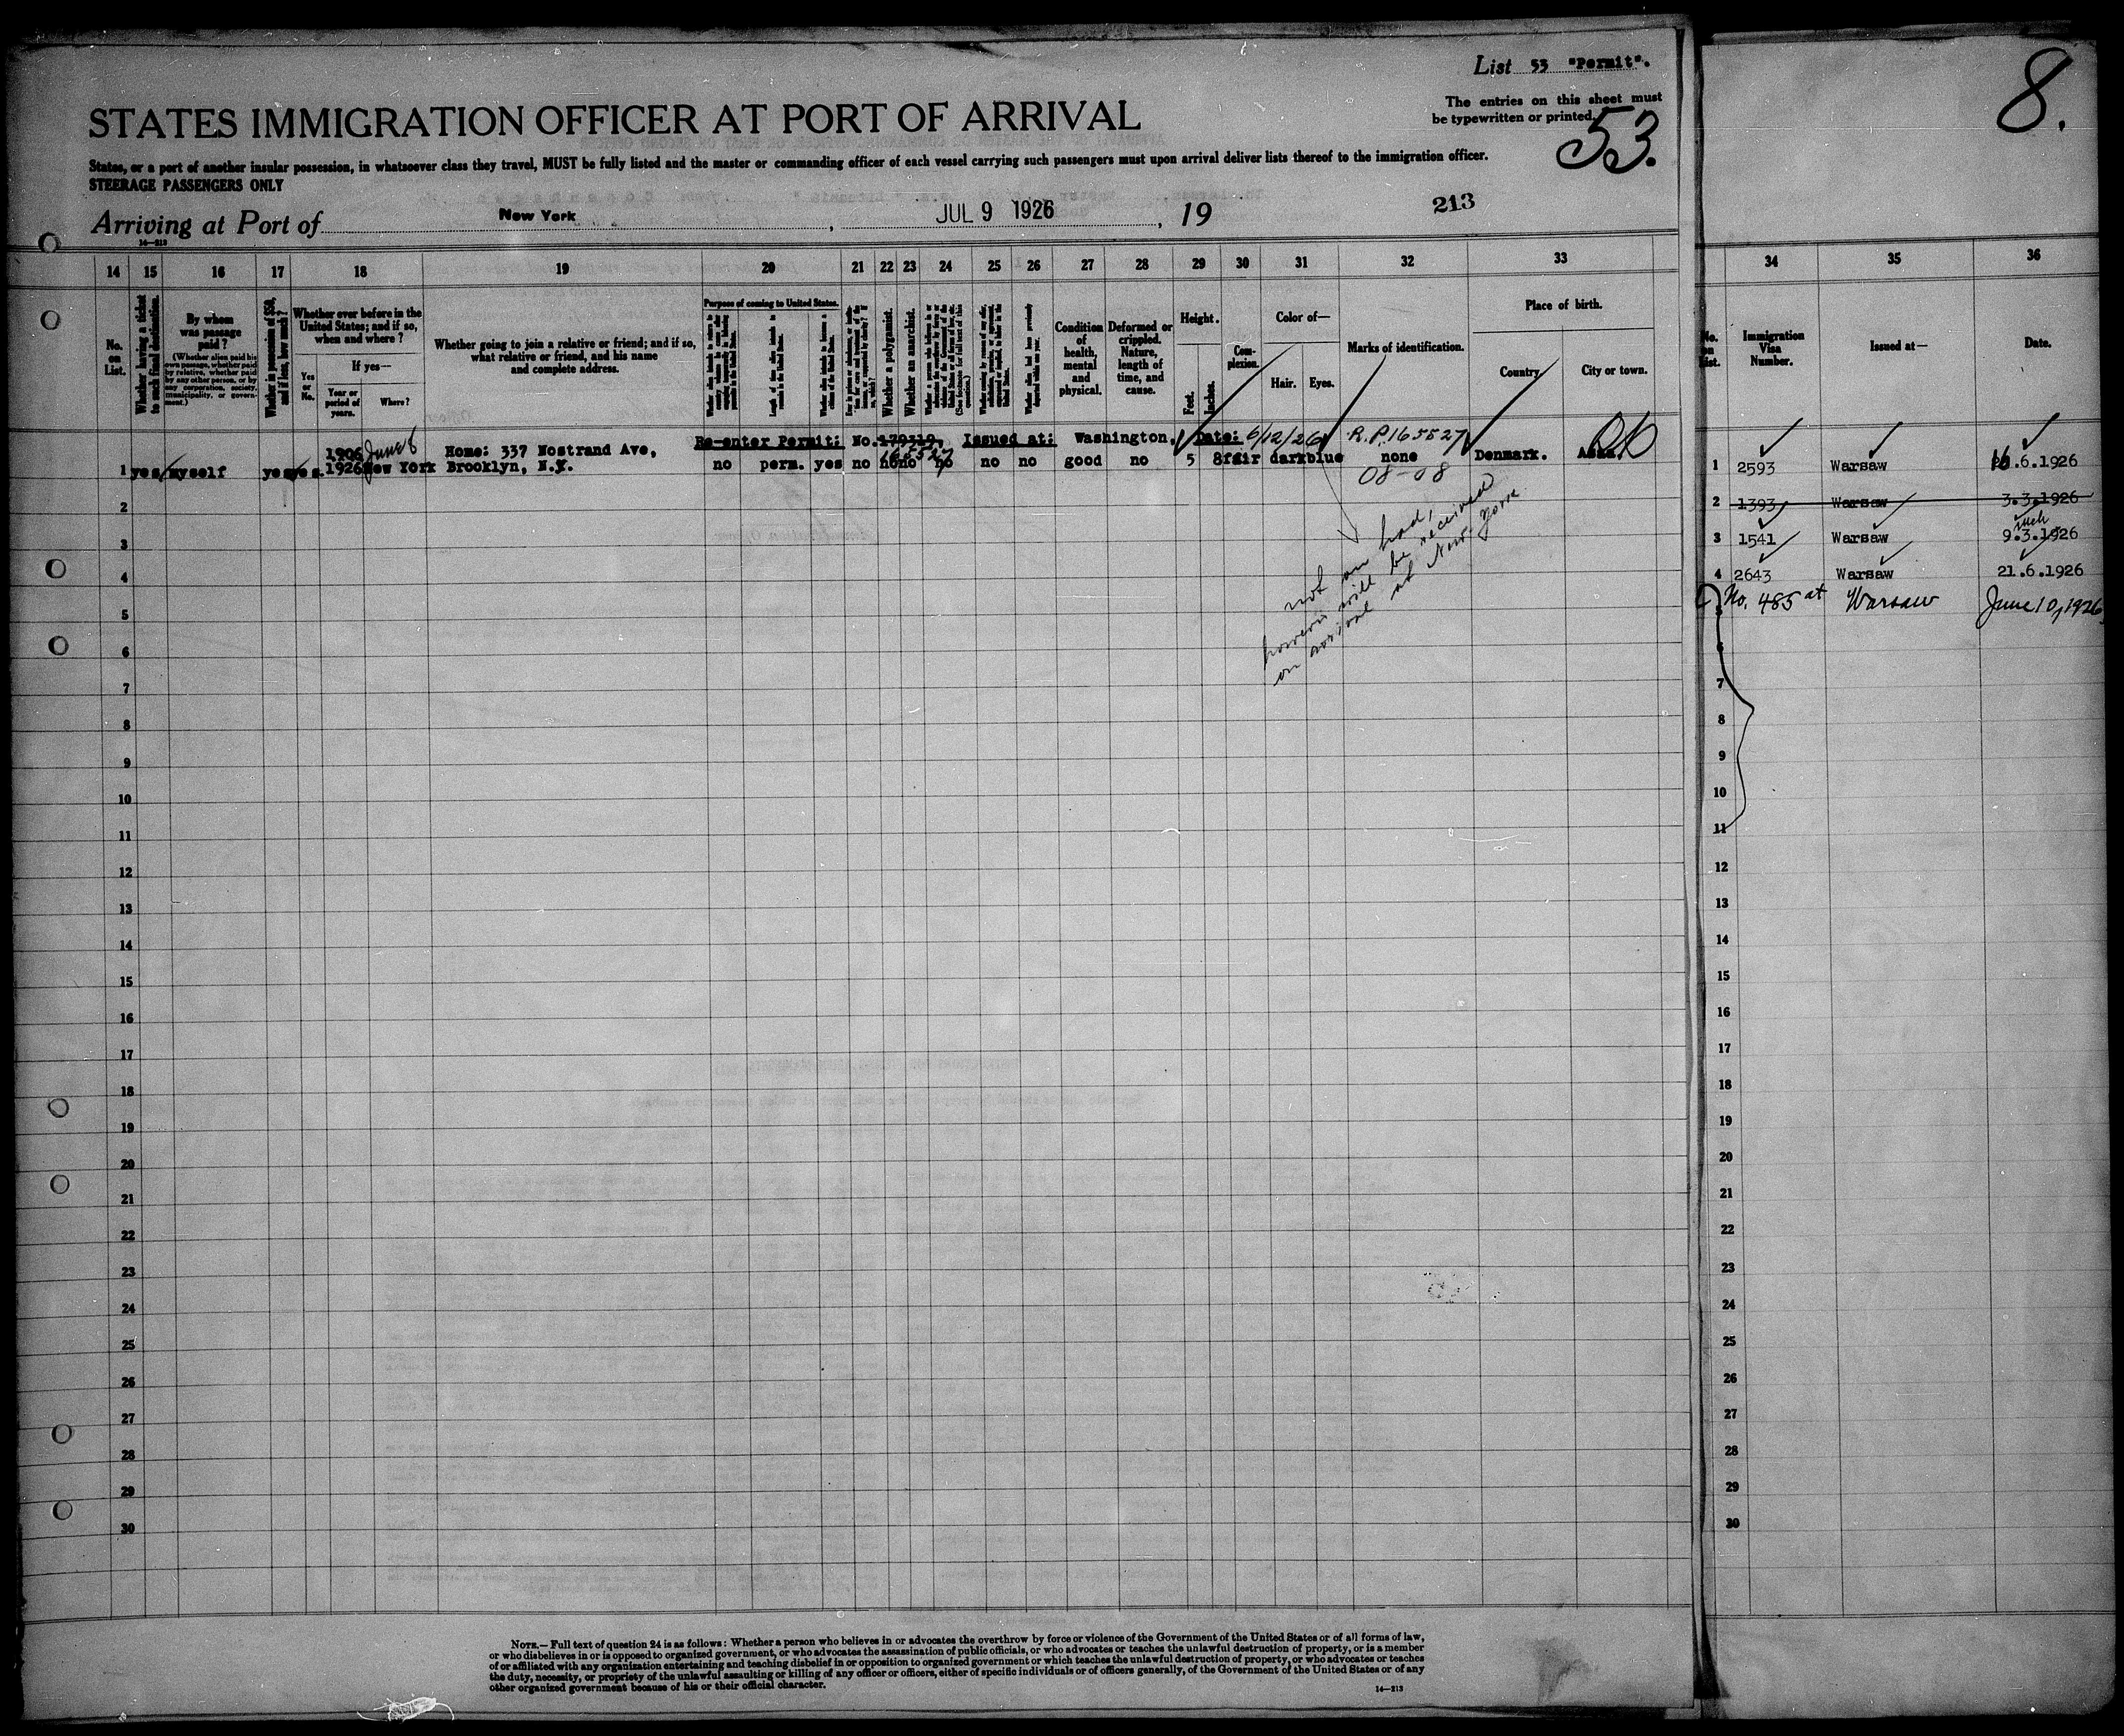 List 53 "Permit".
The entries on this sheet must
be typewritten or printed.
53.
8.
STATES IMMIGRATION OFFICER AT PORT OF ARRIVAL
States, or a port of another insular possession, in whatsoever class they travel, MUST be fully listed and the master or commanding officer of each vessel carrying such passengers must upon arrival deliver lists thereof to the immigration officer.
STEERAGE PASSENGERS ONLY
213
Arriving at Port of New York, JUL 9 1926, 19
14—213
14 15 16 17 18 19 20 21 22 23 24 25 26 27 28 29 30 31 32 33
No. on List.
Whether having a ticket to such final destination.
By whom was passage paid?
(Whether alien paid his own passage, whether paid by relative, whether paid by any other person, or by any corporation, society, municipality, or government.)
Whether in possession of $50, and if less, how much?
Whether ever before in the United States; and if so, when and where?
Yes or No.
If yes—
Year or period of years.
Where?
Whether going to join a relative or friend; and if so, what relative or friend, and his name and complete address.
Purpose of coming to United States.
Length of time alien intends to remain in the United States.
Whether a polygamist.
Whether an anarchist.
Condition of health, mental and physical.
Deformed or crippled. Nature, length of time, and cause.
Height.
Feet.
Inches.
Complexion.
Color of—
Hair.
Eyes.
Marks of identification.
Place of birth.
Country.
City or town.
1906 June 8 Home: 337 Nostrand Ave, Re-enter Permit: No. 179319, Issued at: Washington, Date: 6/12/26 R.P. 165527
165527
1 yes myself yes yes 1926 New York Brooklyn, N.Y. no perm. yes no no no no no no good no 5 8 fair dark blue none Denmark.
08-08
not on hand,
however will be received
on arrival at New York
2
3
4
5
6
7
8
9
10
11
12
13
14
15
16
17
18
19
20
21
22
23
24
25
26
27
28
29
30
34 35 36
No. on List.
Immigration Visa Number.
Issued at—
Date.
1 2593 Warsaw 16.6.1926
2 1393 Warsaw 3.3.1926
3 1541 Warsaw 9.3.1926
4 2643 Warsaw 21.6.1926
No. 485 at Warsaw June 10, 1926
5
6
7
8
9
10
11
12
13
14
15
16
17
18
19
20
21
22
23
24
25
26
27
28
29
30
NOTE.—Full text of question 24 is as follows: Whether a person who believes in or advocates the overthrow by force or violence of the Government of the United States or of all forms of law,
or who disbelieves in or is opposed to organized government, or who advocates the assassination of public officials, or who advocates or teaches the unlawful destruction of property, or is a member
of or affiliated with any organization entertaining and teaching disbelief in or opposition to organized government or which teaches the unlawful destruction of property, or who advocates or teaches
the duty, necessity, or propriety of the unlawful assaulting or killing of any officer or officers, either of specific individuals or of officers generally, of the Government of the United States or of any
other organized government because of his or their official character.
14—213